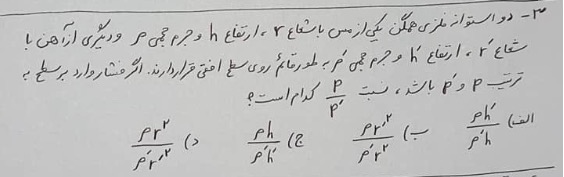 ۳- دو استوانه فلزی همگن یکی از مس با شعاع r، ارتفاع h و جرم حجمی ρ و دیگری از آهن با
شعاع r′، ارتفاع h′ و جرم حجمی ρ′ به طور قائم روی سطح افقی قرار دارند. اگر فشار وارد بر سطح به
ترتیب P و P′ باشد، نسبت P/P′ کدام است؟
الف) ρh′/ρ′h ب) ρr′²/ρ′r² ج) ρh/ρ′h′ د) ρr²/ρ′r′²